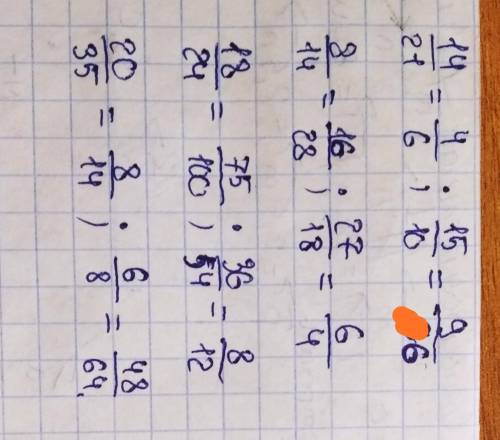 14/21 = 4/6 ; 15/10 = 9/6
8/14 = 16/28 ; 27/18 = 6/4
18/24 = 75/100 ; 36/54 = 8/12
20/35 = 8/14 ; 6/8 = 48/64